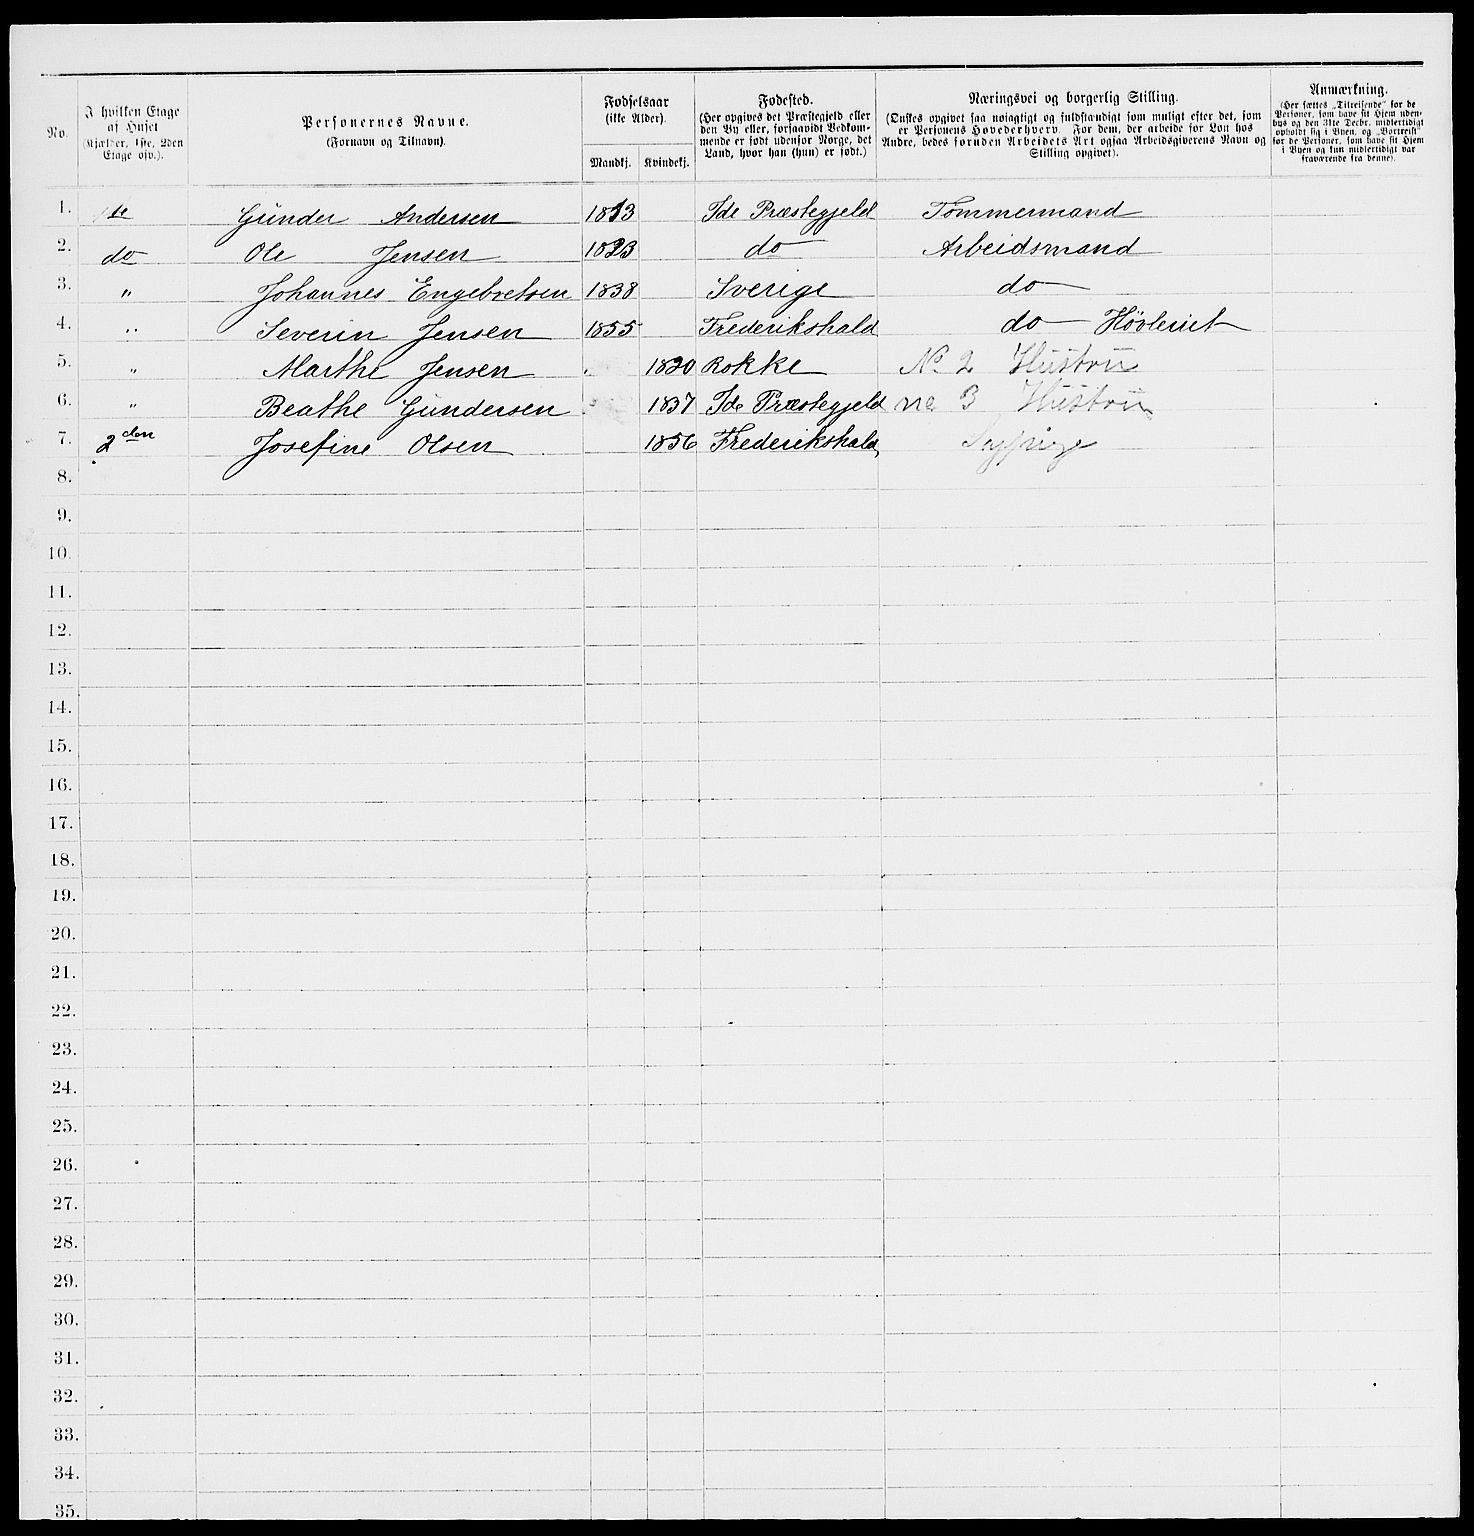 No.
I hvilken Etage af Huset (Kjælder, 1ste, 2den Etage osv.).
Personernes Navne. (Fornavn og Tilnavn).
Fødselsaar (ikke Alder). Mandkj. Kvindekj.
Fødested. (Her opgives det Præstegjeld eller den By eller, forsaavidt Vedkommende er født udenfor Norge, det Land, hvor han (hun) er født.)
Næringsvei og borgerlig Stilling. (Ønskes opgivet saa nøiagtigt og fuldstændigt som muligt efter det, som er Personens Hovederhverv. For dem, der arbeide for Løn hos Andre, bedes foruden Arbeidets Art ogsaa Arbeidsgiverens Navn og Stilling opgivet).
Anmærkning. (Her sættes „Tilreisende“ for de Personer, som have sit Hjem udenbys og den 31te Decbr. midlertidigt opholdt sig i Byen, og „Bortreist“ for de Personer, som have sit Hjem i Byen og kun midlertidigt var fraværende fra denne).
1. 1ste Gunder Andersen 1813 Ide Præstegjeld Tømmermand
2. do Ole Jensen 1823 do Arbeidsmand
3. " Johannes Engebretsen 1838 Sverige do
4. " Severin Jensen 1855 Frederikshald do Høvleriet
5. " Marthe Jensen 1820 Rokke No 2 Hustru
6. " Beathe Gundersen 1837 Ide Præstegjeld no 3 Hustru
7. 2den Josefine Olsen 1856 Frederikshald Sypige
8.
9.
10.
11.
12.
13.
14.
15.
16.
17.
18.
19.
20.
21.
22.
23.
24.
25.
26.
27.
28.
29.
30.
31.
32.
33.
34.
35.